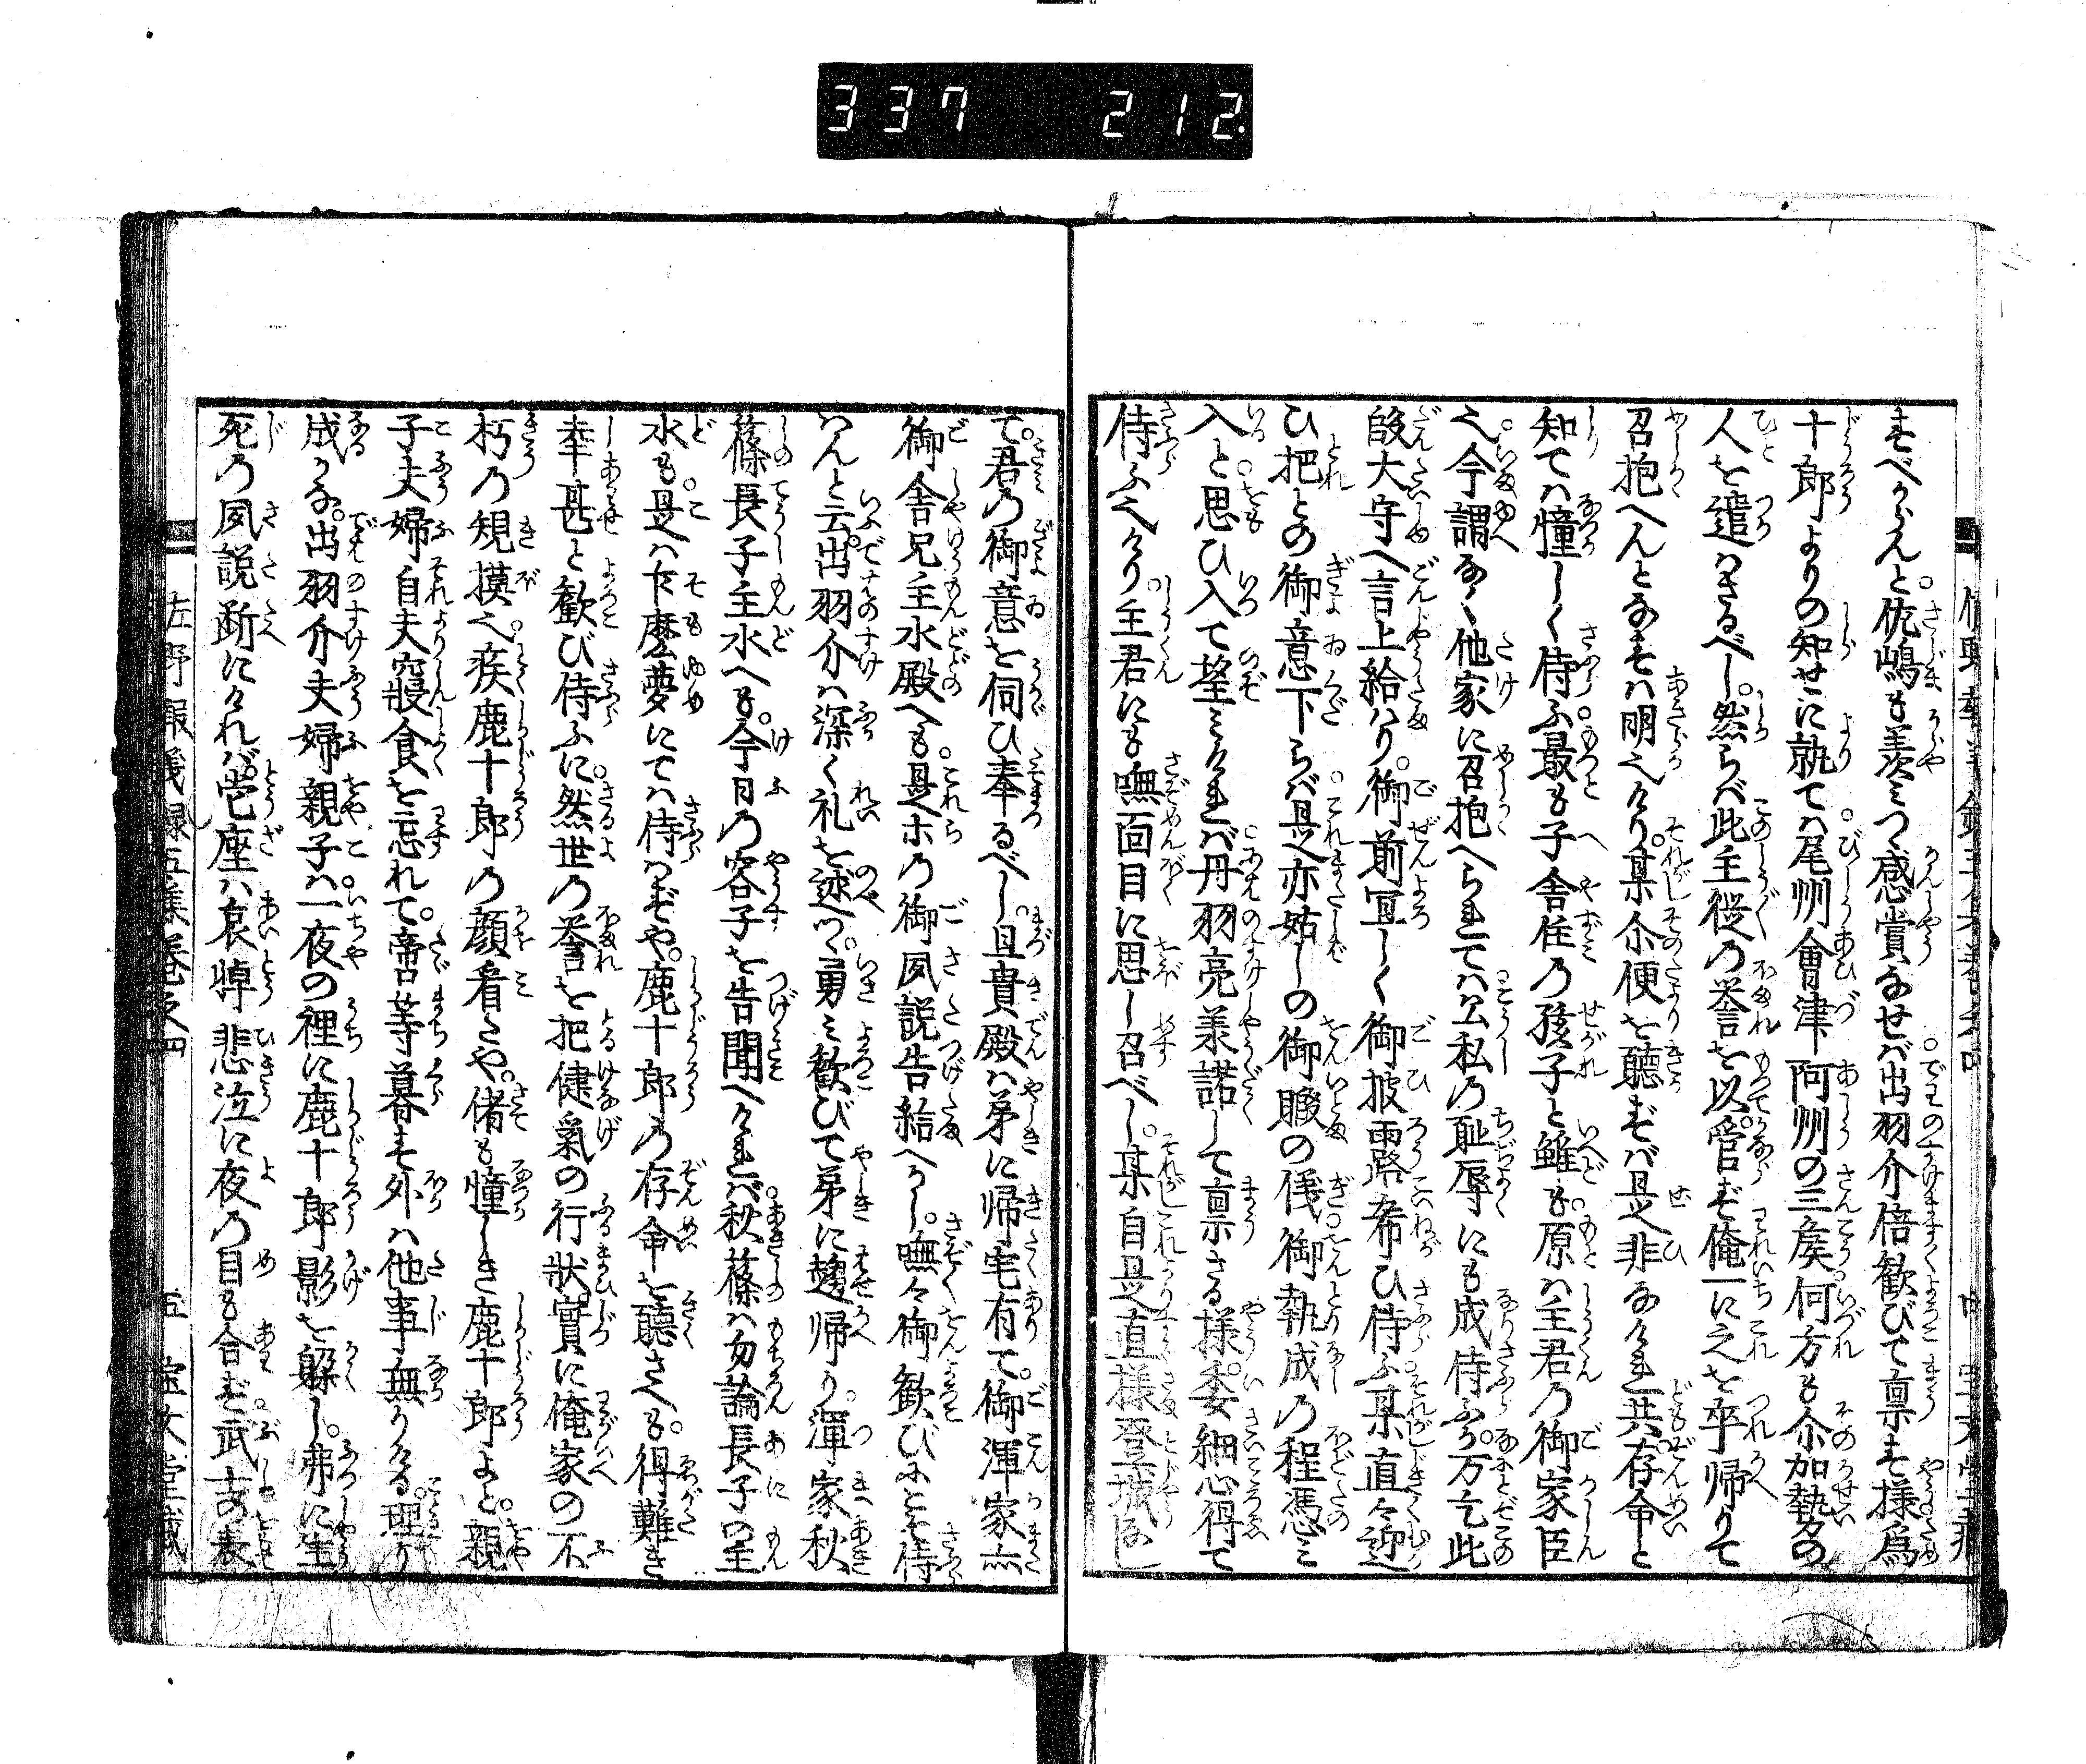 337 212
まべからんと。佐嶋も羨みつ感賞なせば。出羽介倍歓びて禀す様。為
十郎よりの知せに執ては。尾州會津阿州の三矦。何方も尒加勢の
人を遣はさるべし。然らば此主従の誉を以。管ず俺一に之を卒帰りて
召抱へんとなさは明へけり。某尒便を聽ずば是非なけれ共。存命と
知ては憧しく侍ふ。最も子舎住の孩子と雖も。原は主君の御家臣
之。今謂なく他家に召抱へられては。公私の耻辱にも成侍ふ。万乞此
段大守へ言上給はり。御前冝しく御披露希ひ侍ふ。某直々迎
ひ把との御意下らば。是亦姑しの御賜の儀。御執成の程憑み
入と。思ひ入て望みければ。丹羽亮美諾して禀さる様。委細心得て
侍ふへけり。主君にも嘸面目に思し召べし。某自是直様登城
て。君の御意を伺ひ奉るべし。且貴殿は弟に帰宅有て。御渾家亦
御舎兄主水殿へも。是ホの御夙説告給へかし。嘸々御歓びにこそ侍
はんと云。出羽介は深く礼を述つ。勇み歓びて弟に趨帰り。渾家秋
篠長子主水へも。今日の容子を告聞へければ。秋篠は勿論長子の主
水も。是は什麼夢にては侍はずや。鹿十郎の存命を聽さへも。得難き
幸甚と歓び侍ふに。然世の誉を把健氣の行状。實に俺家の不
朽の規摸之。疾鹿十郎の顔看たや。偖も憧しき鹿十郎よと。親
子夫婦自夫寢食を忘れて。啻等暮す外は他事無りける。理り
成かな。出羽介夫婦親子は。一夜の裡に鹿十郎影を躱し。弗に生
死の夙説断にければ。當座は哀悼悲泣に夜の目も合ず。武士の表
佐野報義録五集巻之四 五 宝文堂蔵